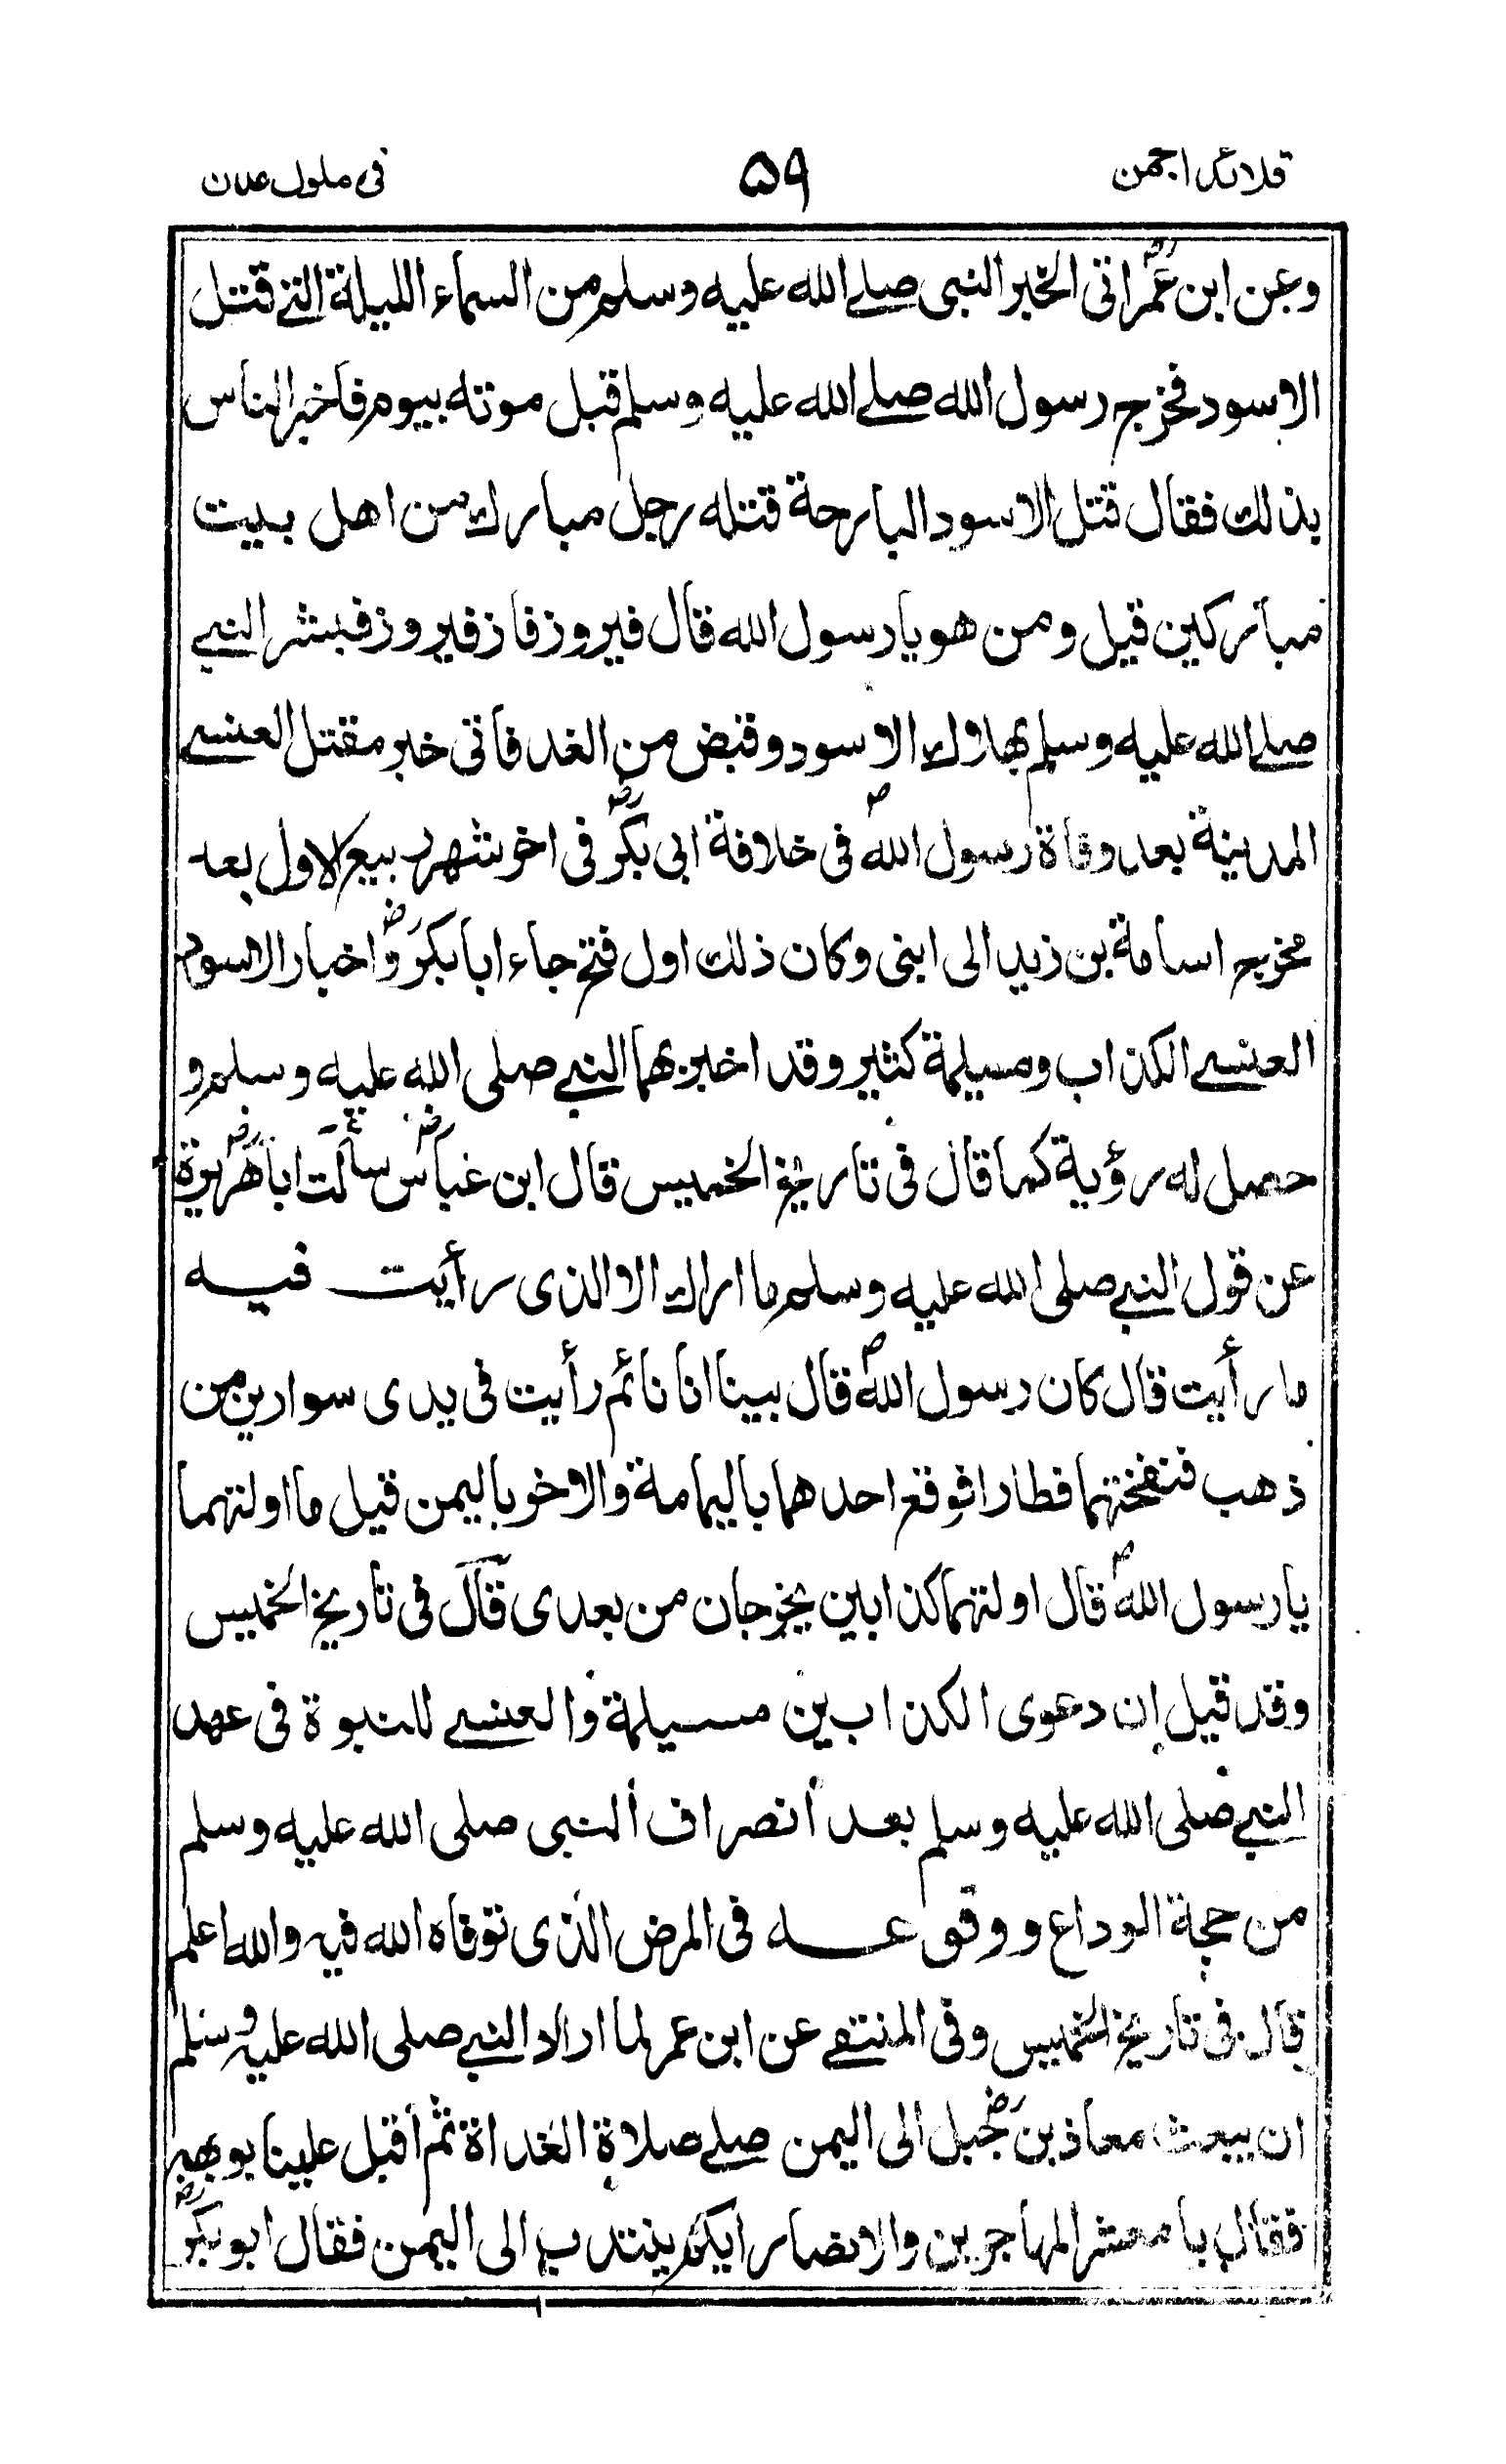 قلائد الجمن ٥٩ فی ملوك عدن
وعن ابن عمرؓ اتی الخبر النبی صلے الله علیه وسلم من السماء اللیلة التے قتل
الاسود فخرج رسول الله صلے الله علیه وسلم قبل موته بیوم فاخبر الناس
بذلك فقال قتل الاسود البارحة قتله رجل مبارك من اهل بیت
مبارکین قیل ومن هو یا رسول الله قال فیروز فاز فیروز فبشر النبے
صلے الله علیه وسلم بهلاك الاسود وقبض من الغد فاتی خبر مقتل العنسے
المدینة بعد وفاة رسول اللهؐ فی خلافة ابی بکرؓ فی اخر شهر ربیع الاول بعد
مخرج اسامة بن زید الی ابنی وکان ذلك اول فتح جاء ابابکرؓ واخبار الاسود
العنسے الکذاب ومسیلمة کثیر وقد اخبر بهما النبے صلی الله علیه وسلم و
حصل له رؤیة کما قال فی تاریخ الخمیس قال ابن عباسؓ سألت اباهریرةؓ
عن قول النبے صلی الله علیه وسلم ما اراك الا الذی رأیت فیه
ما رأیت قال کان رسول اللهؐ قال بینا انا نائم رأیت فی یدی سوارین من
ذهب فنفختهما فطارا فوقع احدهما بالیمامة والاخر بالیمن قیل ما اولتهما
یا رسول اللهؐ قال اولتهما کذابین یخرجان من بعدی قال فی تاریخ الخمیس
وقد قیل ان دعوی الکذابین مسیلمة والعنسے للنبوة فی عهد
النبے صلی الله علیه وسلم بعد أنصراف النبی صلی الله علیه وسلم
من حجة الوداع ووقوعه فی المرض الذی توفاه الله فیه والله اعلم
قال فی تاریخ الخمیس وفی المنتقے عن ابن عمر لما اراد النبے صلی الله علیه وسلم
ان یبعث معاذ بن جبلؓ الی الیمن صلے صلاة الغداة ثم أقبل علینا بوجهه
فقال یا معشر المهاجرین والانصار ایکم ینتدب الی الیمن فقال ابوبکرؓ